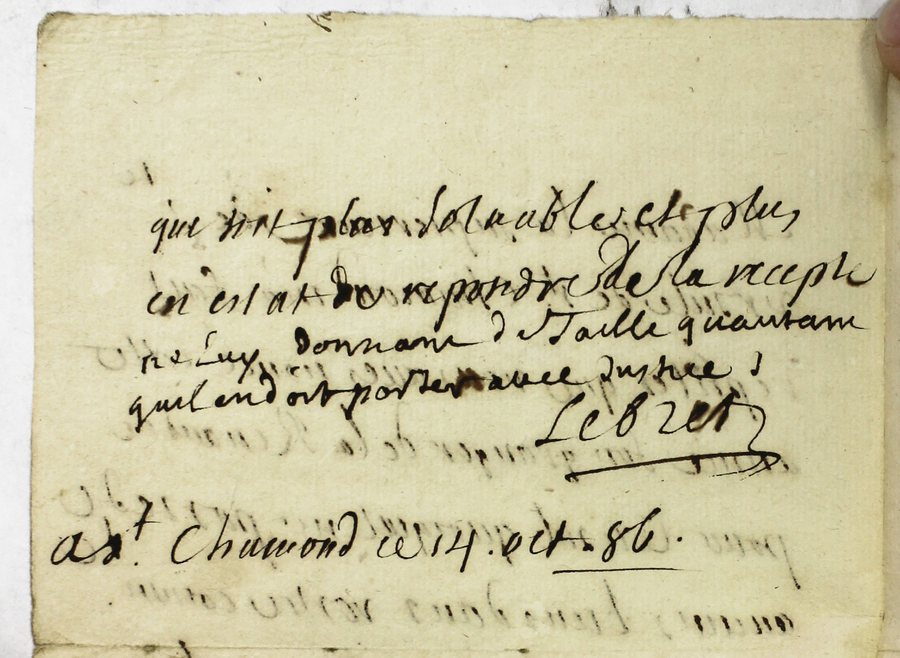 que soit plus soluables et plus
en estat de repondre de la recepte
ne Luy donnant de Taille quautant
quil en doit porter avec Justice
Lebret
a st. Chamond ce 14. oct. 86.